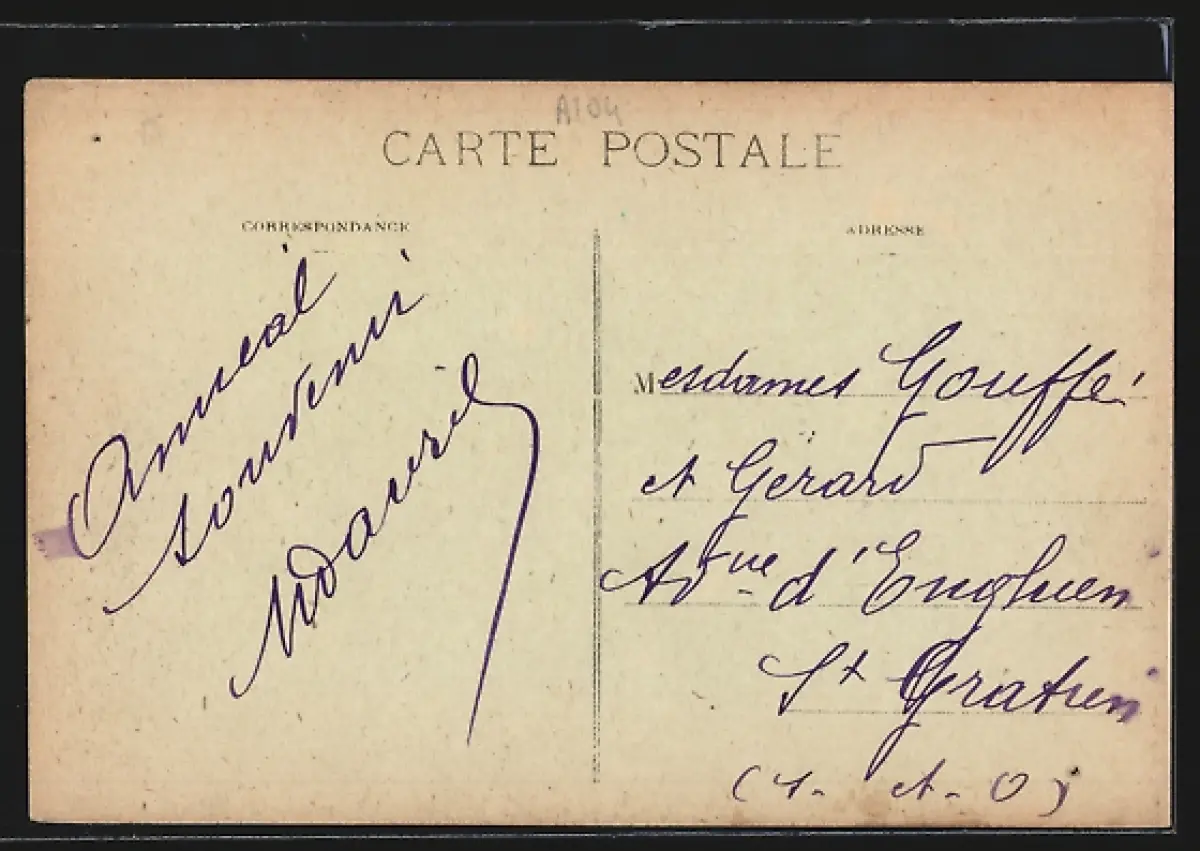 A104
CARTE POSTALE
CORRESPONDANCE
Amical
souvenir
ADRESSE
Mesdames Gouffé
et Gérard
Avue d'Enghien
St Gratien
(S.-et-O)